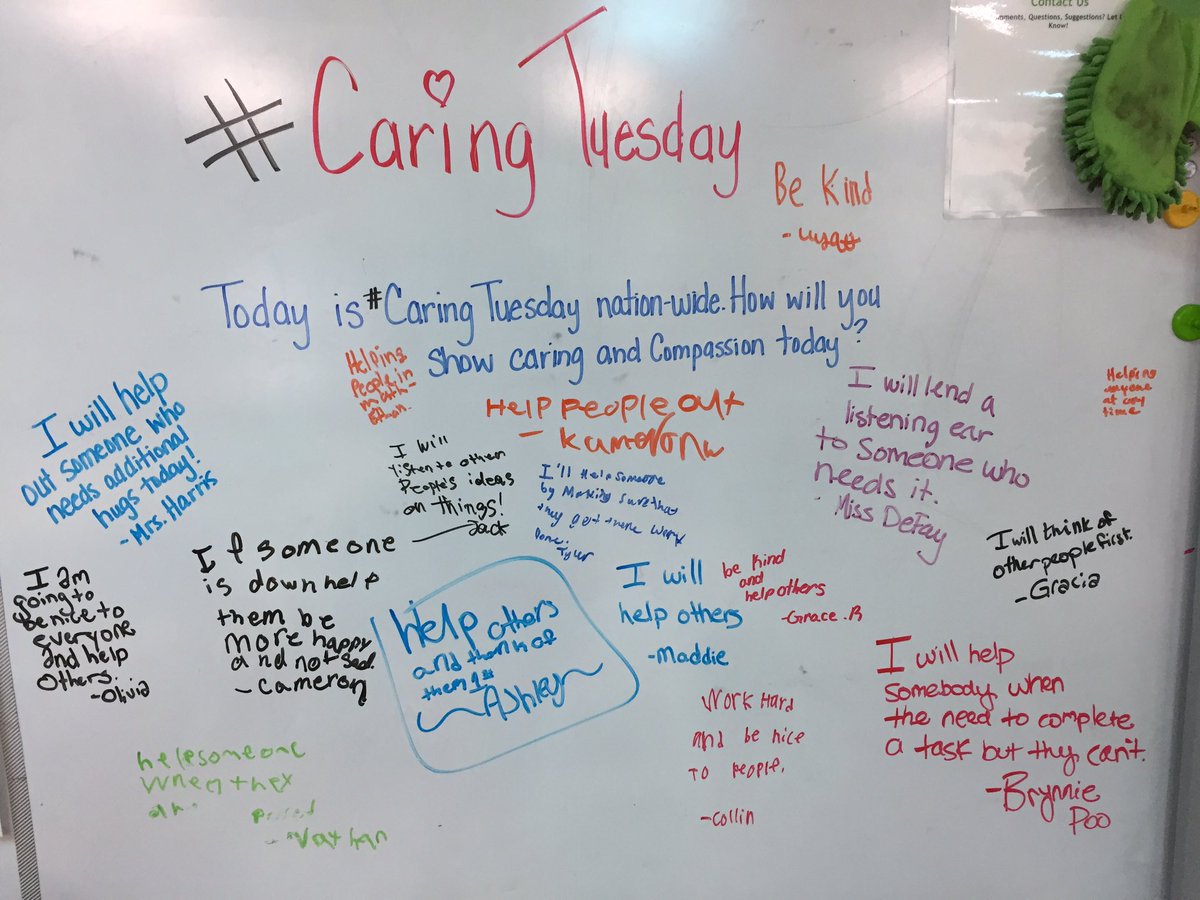 Contact Us
mments, Questions, Suggestions? Let
Know!
#Caring Tuesday
Be Kind
- Wyatt
Today is #Caring Tuesday nation-wide. How will you
show caring and Compassion today?
Helping
People in
math-
I will help
out someone who
needs additional
hugs today!
- Mrs. Harris
I will
listen to other
People's ideas
on things!
Jack
HELP PEOPLE OUT
- Kameron w
I will lend a
listening ear
to Someone who
needs it.
- Miss DeFay
Helping
anyone
at any
time
I'll Help someone
by Making sure that
they get there work
Done.
Tyler
I will think of
other people first.
- Gracia
I am
going to
be nice to
everyone
and help
others.
- Olivia
If someone
is down help
them be
more happy
and not sad.
- Cameron
Help others
and think of
them 1st
Ashley
I will
help others
- Maddie
be kind
and
help others
- Grace. R
I will help
somebody when
the need to complete
a task but they can't.
- Brymie
Poo
Work Hard
and be nice
to people.
- Collin
help someone
when they